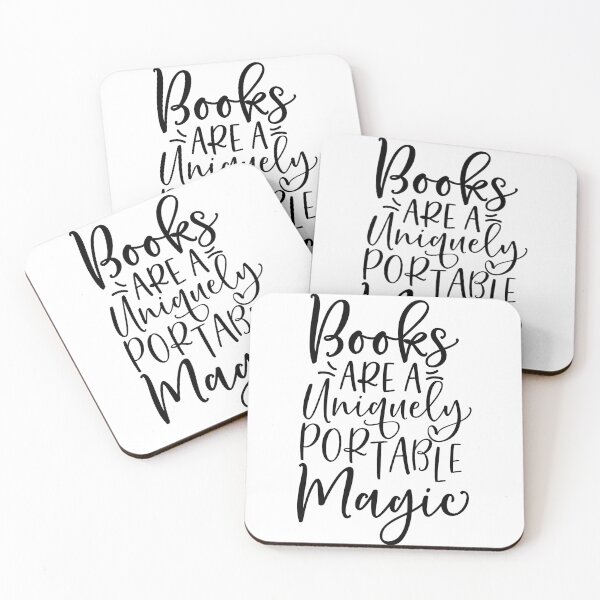 Books
ARE A
Uniquely
Books
ARE A
Uniquely
PORTABLE
Books
ARE A
Uniquely
PORTABLE
Mag
Books
ARE A
Uniquely
PORTABLE
Magic